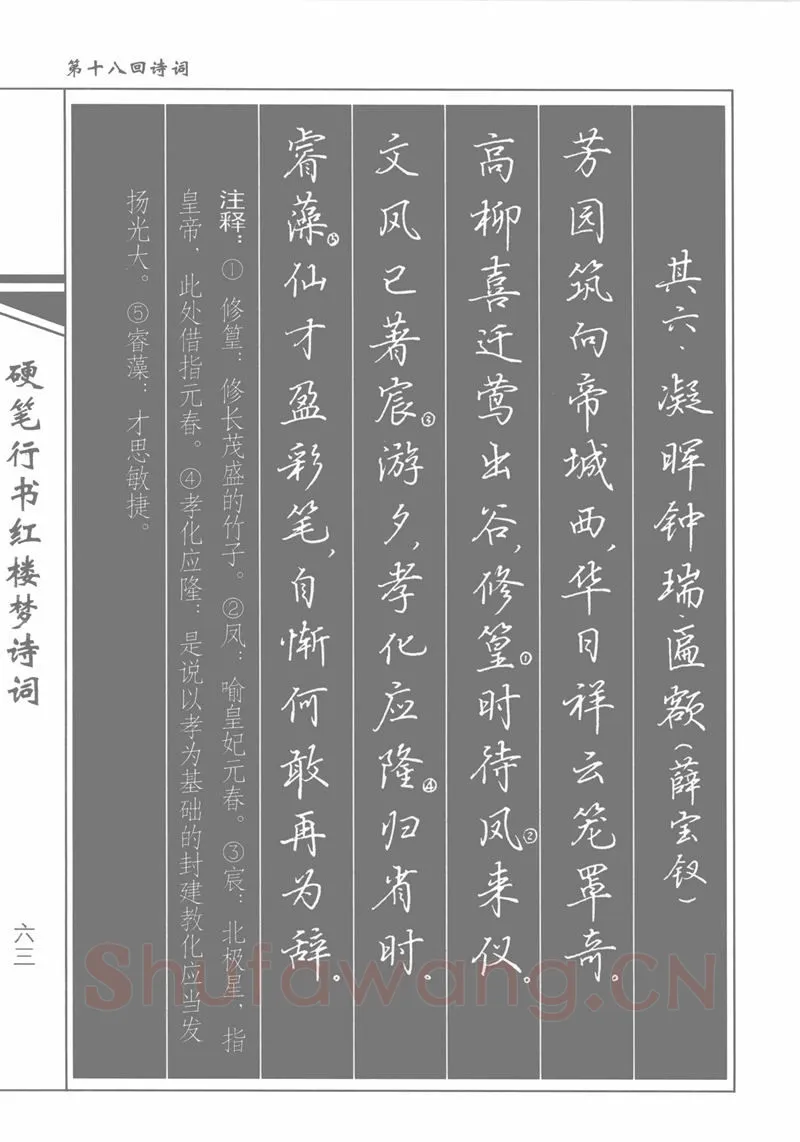 第十八回诗词
其六·凝晖钟瑞匾额(薛宝钗)
芳园筑向帝城西,华日祥云笼罩奇。
高柳喜迁莺出谷,修篁①时待凤②来仪。
文风已著宸③游夕,孝化应隆④归省时。
睿藻⑤仙才盈彩笔,自惭何敢再为辞。
注释:①修篁:修长茂盛的竹子。②凤:喻皇妃元春。③宸:北极星,指
皇帝,此处借指元春。④孝化应隆:是说以孝为基础的封建教化应当发
扬光大。⑤睿藻:才思敏捷。
硬笔行书红楼梦诗词
六三
Shufawang.CN